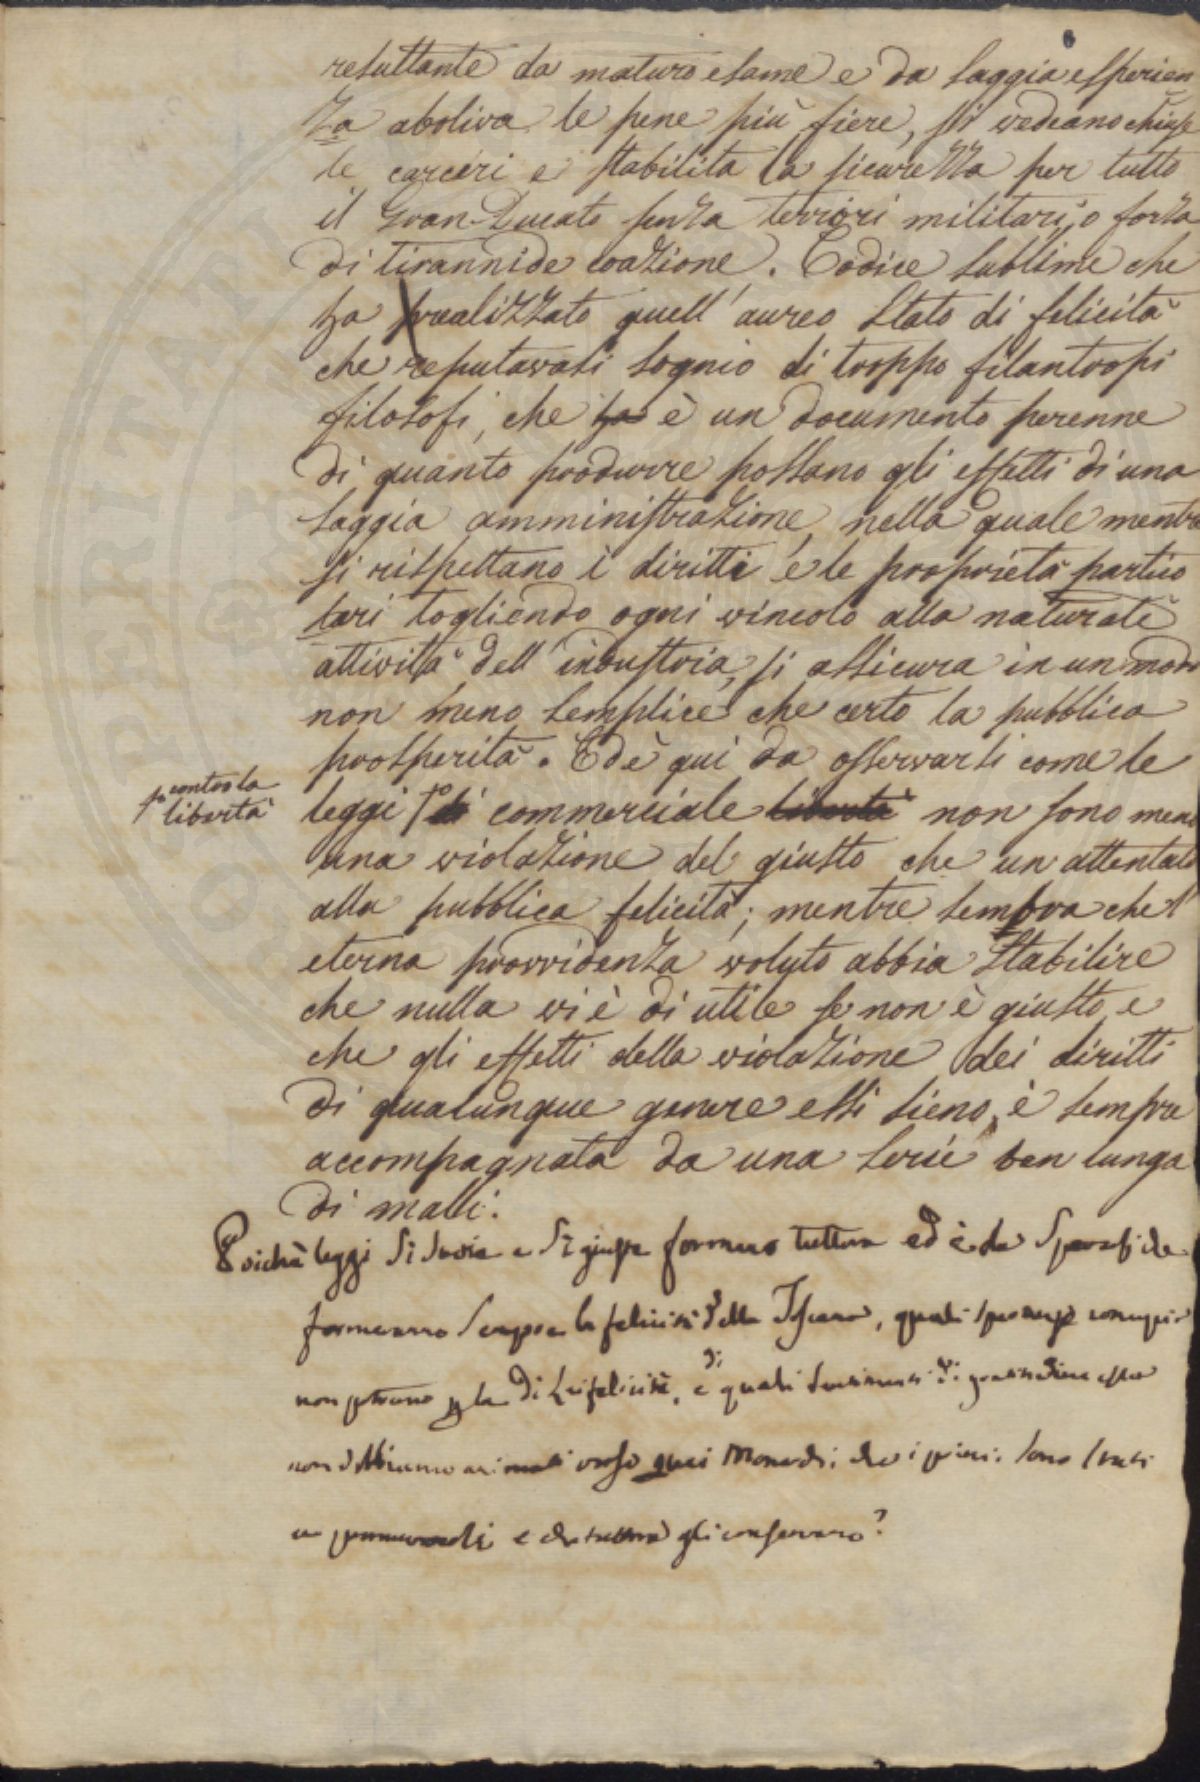 6
resultante da maturo esame e da saggia esperien
za aboliva le pene più fiere, si vedeano chiuse
le carceri e stabilita la sicurezza per tutto
il Gran-Ducato senza terrori militari, o forza
di tirannide coazione. Codice sublime che
ha realizzato quell'aureo stato di felicità
che reputavasi sognio di troppo filantropi
filosofi, che ha è un documento perenne
di quanto produrre possano gli effetti di una
saggia amministrazione, nella quale mentre
si rispettano i diritti e le proprietà partico
lari togliendo ogni vincolo alla naturale
attività dell'industria, si assicura in un modo
non meno semplice che certo la pubblica
prosperità. Ed è qui da osservarsi come le
contro la
libertà
leggi di commerciale libertà non sono meno
una violazione del giusto che un attentato
alla pubblica felicità; mentre sembra che l'
eterna provvidenza voluto abbia stabilire
che nulla vi è di utile se non è giusto, e
che gli effetti della violazione dei diritti
di qualunque genere essi sieno, è sempre
accompagnata da una serie ben lunga
di malli.
Poichè leggi sì savie e sì giuste formano tuttora ed è da sperarsi che
formeranno sempre la felicità della Toscana, quali speranze concepir
non potremo di lei felicità, e di quali sentimenti di gratitudine essa
non dobbiamo animati verso quei Monarchi che i primi sono stati
a e che tuttora gli conservano?